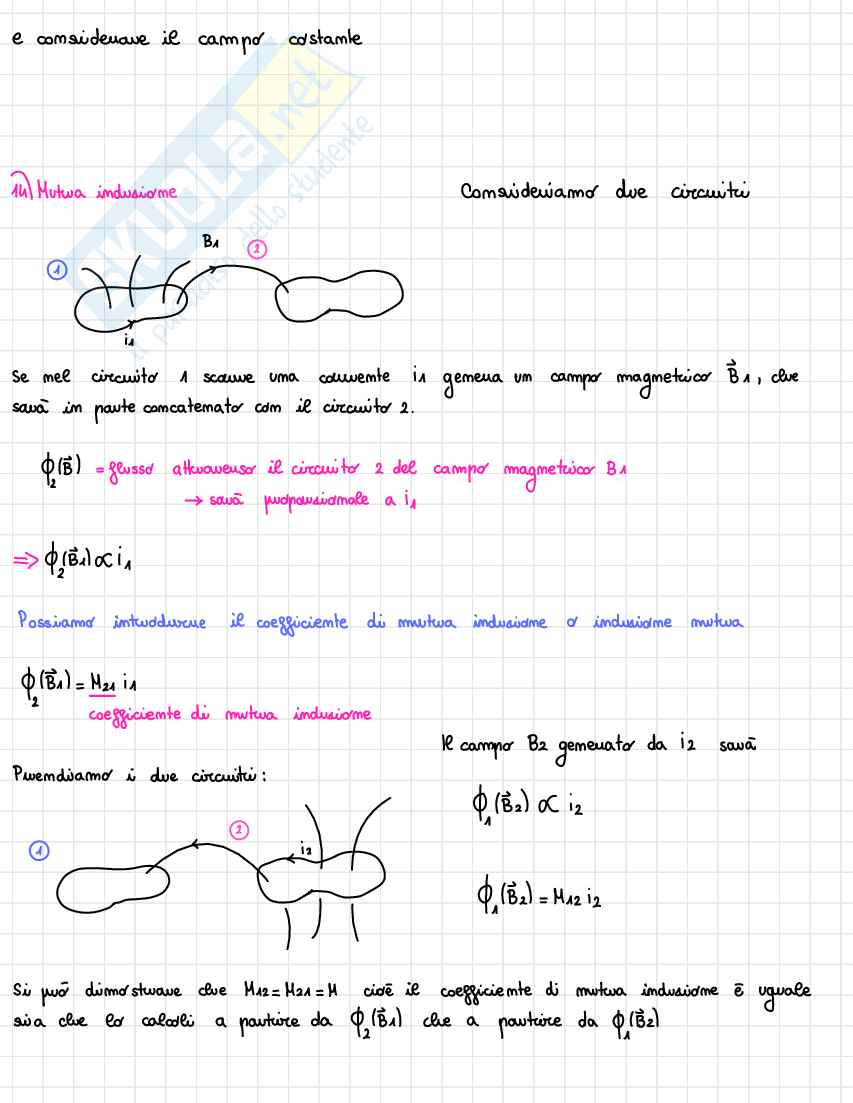 e considerare il campo costante
SKUOLA.net
il paradiso dello studente
14) Mutua induzione
Consideriamo due circuiti
1
B1
2
i1
Se nel circuito 1 scorre una corrente i1 genera un campo magnetico B⃗1, che
sarà in parte concatenato con il circuito 2.
ϕ₂(B⃗) = flusso attraverso il circuito 2 del campo magnetico B1
→ sarà proporzionale a i1
⇒ ϕ₂(B⃗1) ∝ i1
Possiamo introdurre il coefficiente di mutua induzione o induzione mutua
ϕ₂(B⃗1) = M21 i1
coefficiente di mutua induzione
Il campo B2 generato da i2 sarà
Prendiamo i due circuiti:
ϕ₁(B⃗2) ∝ i2
1
2
i2
ϕ₁(B⃗2) = M12 i2
Si può dimostrare che M12 = M21 = M cioè il coefficiente di mutua induzione è uguale
sia che lo calcoli a partire da ϕ₂(B⃗1) che a partire da ϕ₁(B⃗2)